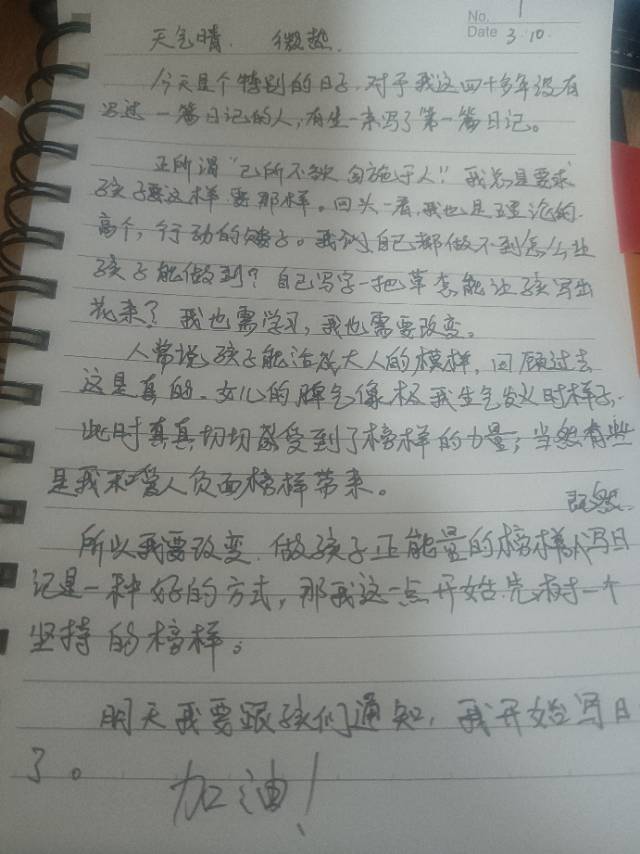 No. 1
Date 3.10.
天气晴. 微热.
今天是个特别的日子,对于我这四十多年没有
写过一篇日记的人,有生一来写了第一篇日记。
正所谓"己所不欲勿施于人!"我总是要求
孩子要这样要那样。回头一看,我也是理论的
高个,行动的矮子。我们自己都做不到怎么让
孩子能做到?自己写字一把草怎能让孩写出
花来?我也需学习,我也需要改变。
人常说孩子能活成大人的模样,回顾过去
这是真的.女儿的脾气像极我生气发火时样子,
此时真真切切感受到了榜样的力量,当然有些
是我和爱人负面榜样带来。
既然
所以我要改变.做孩子正能量的榜样,写日
记是一种好的方式,那我这一点开始.先树一个
坚持的榜样;
明天我要跟孩们通知,我开始写日
了。
加油!